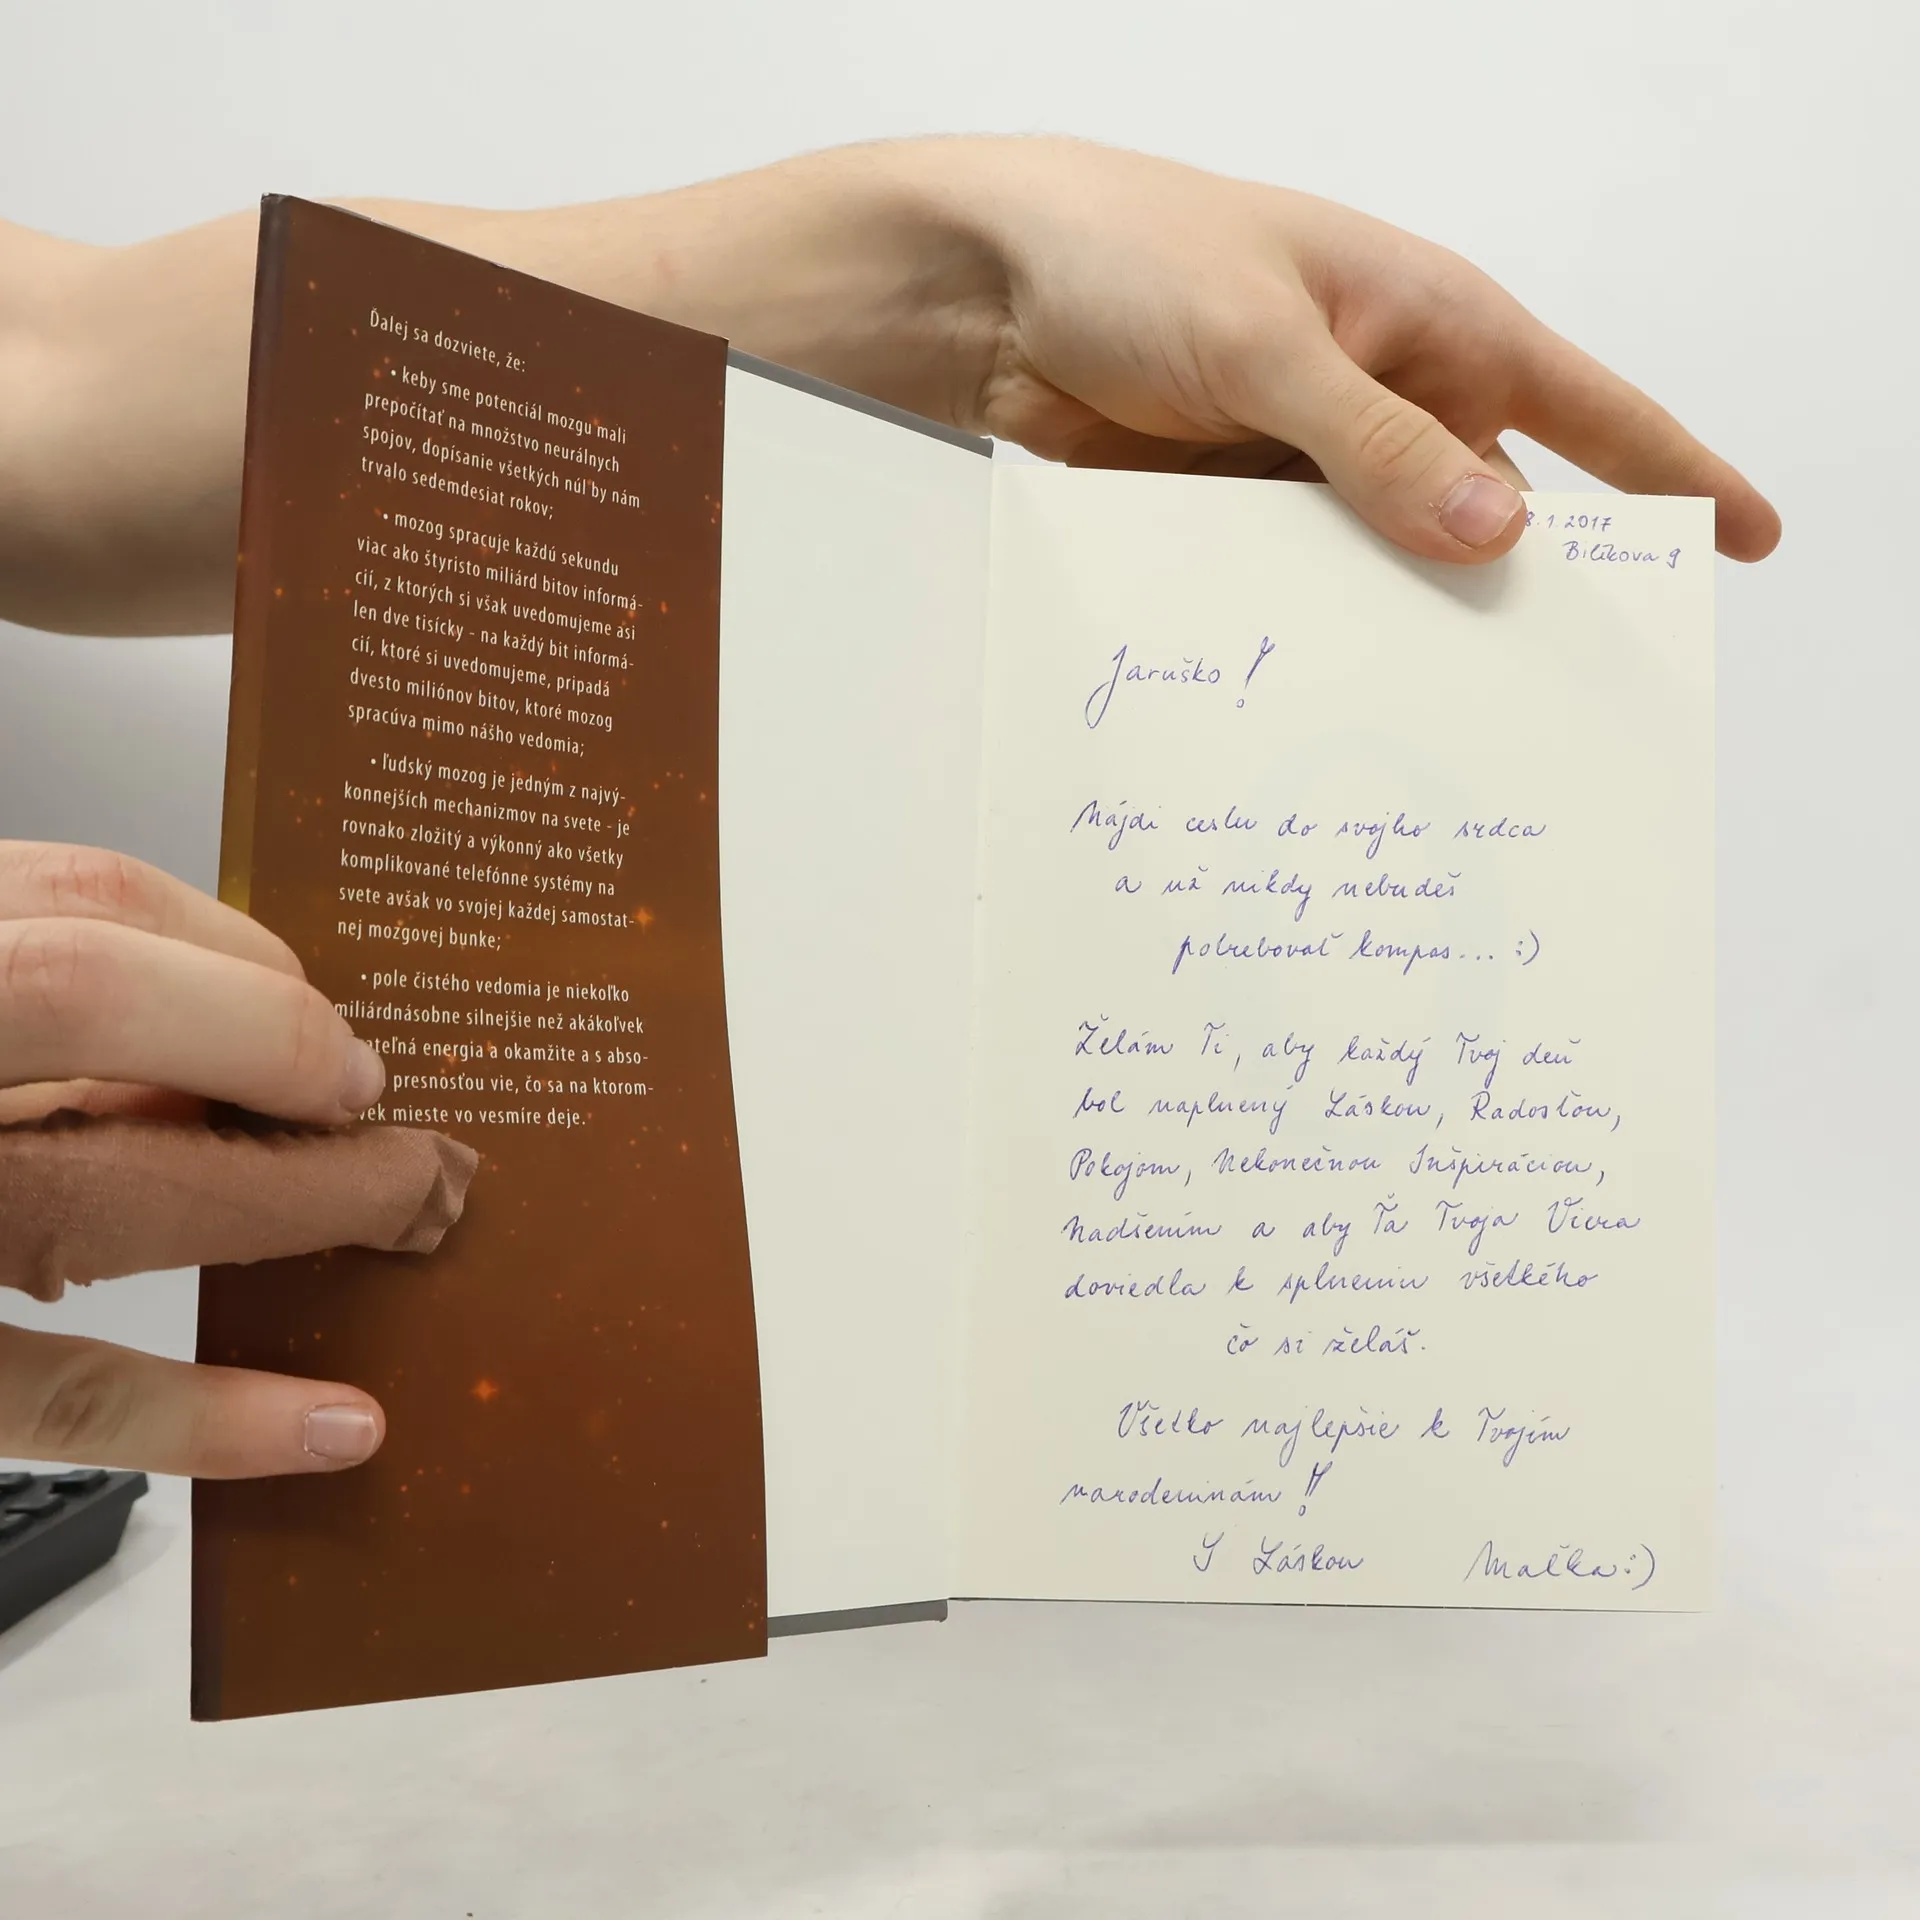 Ďalej sa dozviete, že:
• keby sme potenciál mozgu mali
prepočítať na množstvo neurálnych
spojov, dopísanie všetkých núl by nám
trvalo sedemdesiat rokov;
• mozog spracuje každú sekundu
viac ako štyristo miliárd bitov informá-
cií, z ktorých si však uvedomujeme asi
len dve tisícky - na každý bit informá-
cií, ktoré si uvedomujeme, pripadá
dvesto miliónov bitov, ktoré mozog
spracúva mimo nášho vedomia;
• ľudský mozog je jedným z najvý-
konnejších mechanizmov na svete - je
rovnako zložitý a výkonný ako všetky
komplikované telefónne systémy na
svete avšak vo svojej každej samostat-
nej mozgovej bunke;
• pole čistého vedomia je niekoľko
miliárdnásobne silnejšie než akákoľvek
energia a okamžite a s abso-
presnosťou vie, čo sa na ktorom-
vek mieste vo vesmíre deje.
8.1.2017
Bilíkova 9
Jaruško!
Nájdi cestu do svojho srdca
a už nikdy nebudeš
potrebovať kompas... :)
Želám Ti, aby každý Tvoj deň
bol naplnený Láskou, Radosťou,
Pokojom, Nekonečnou Inšpiráciou,
Nadšením a aby Ťa Tvoja Viera
doviedla k splneniu všetkého
čo si želáš.
Všetko najlepšie k Tvojím
narodeninám!
S Láskou Maťka:)